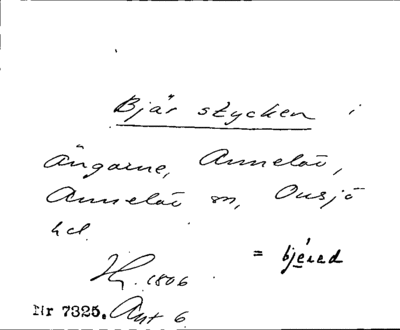 Bjär stycken i
Ängarne, Annelöv,
Annelöv sn, Onsjö
hd.
= bjéred
1806
Nr 7325. Akt 6